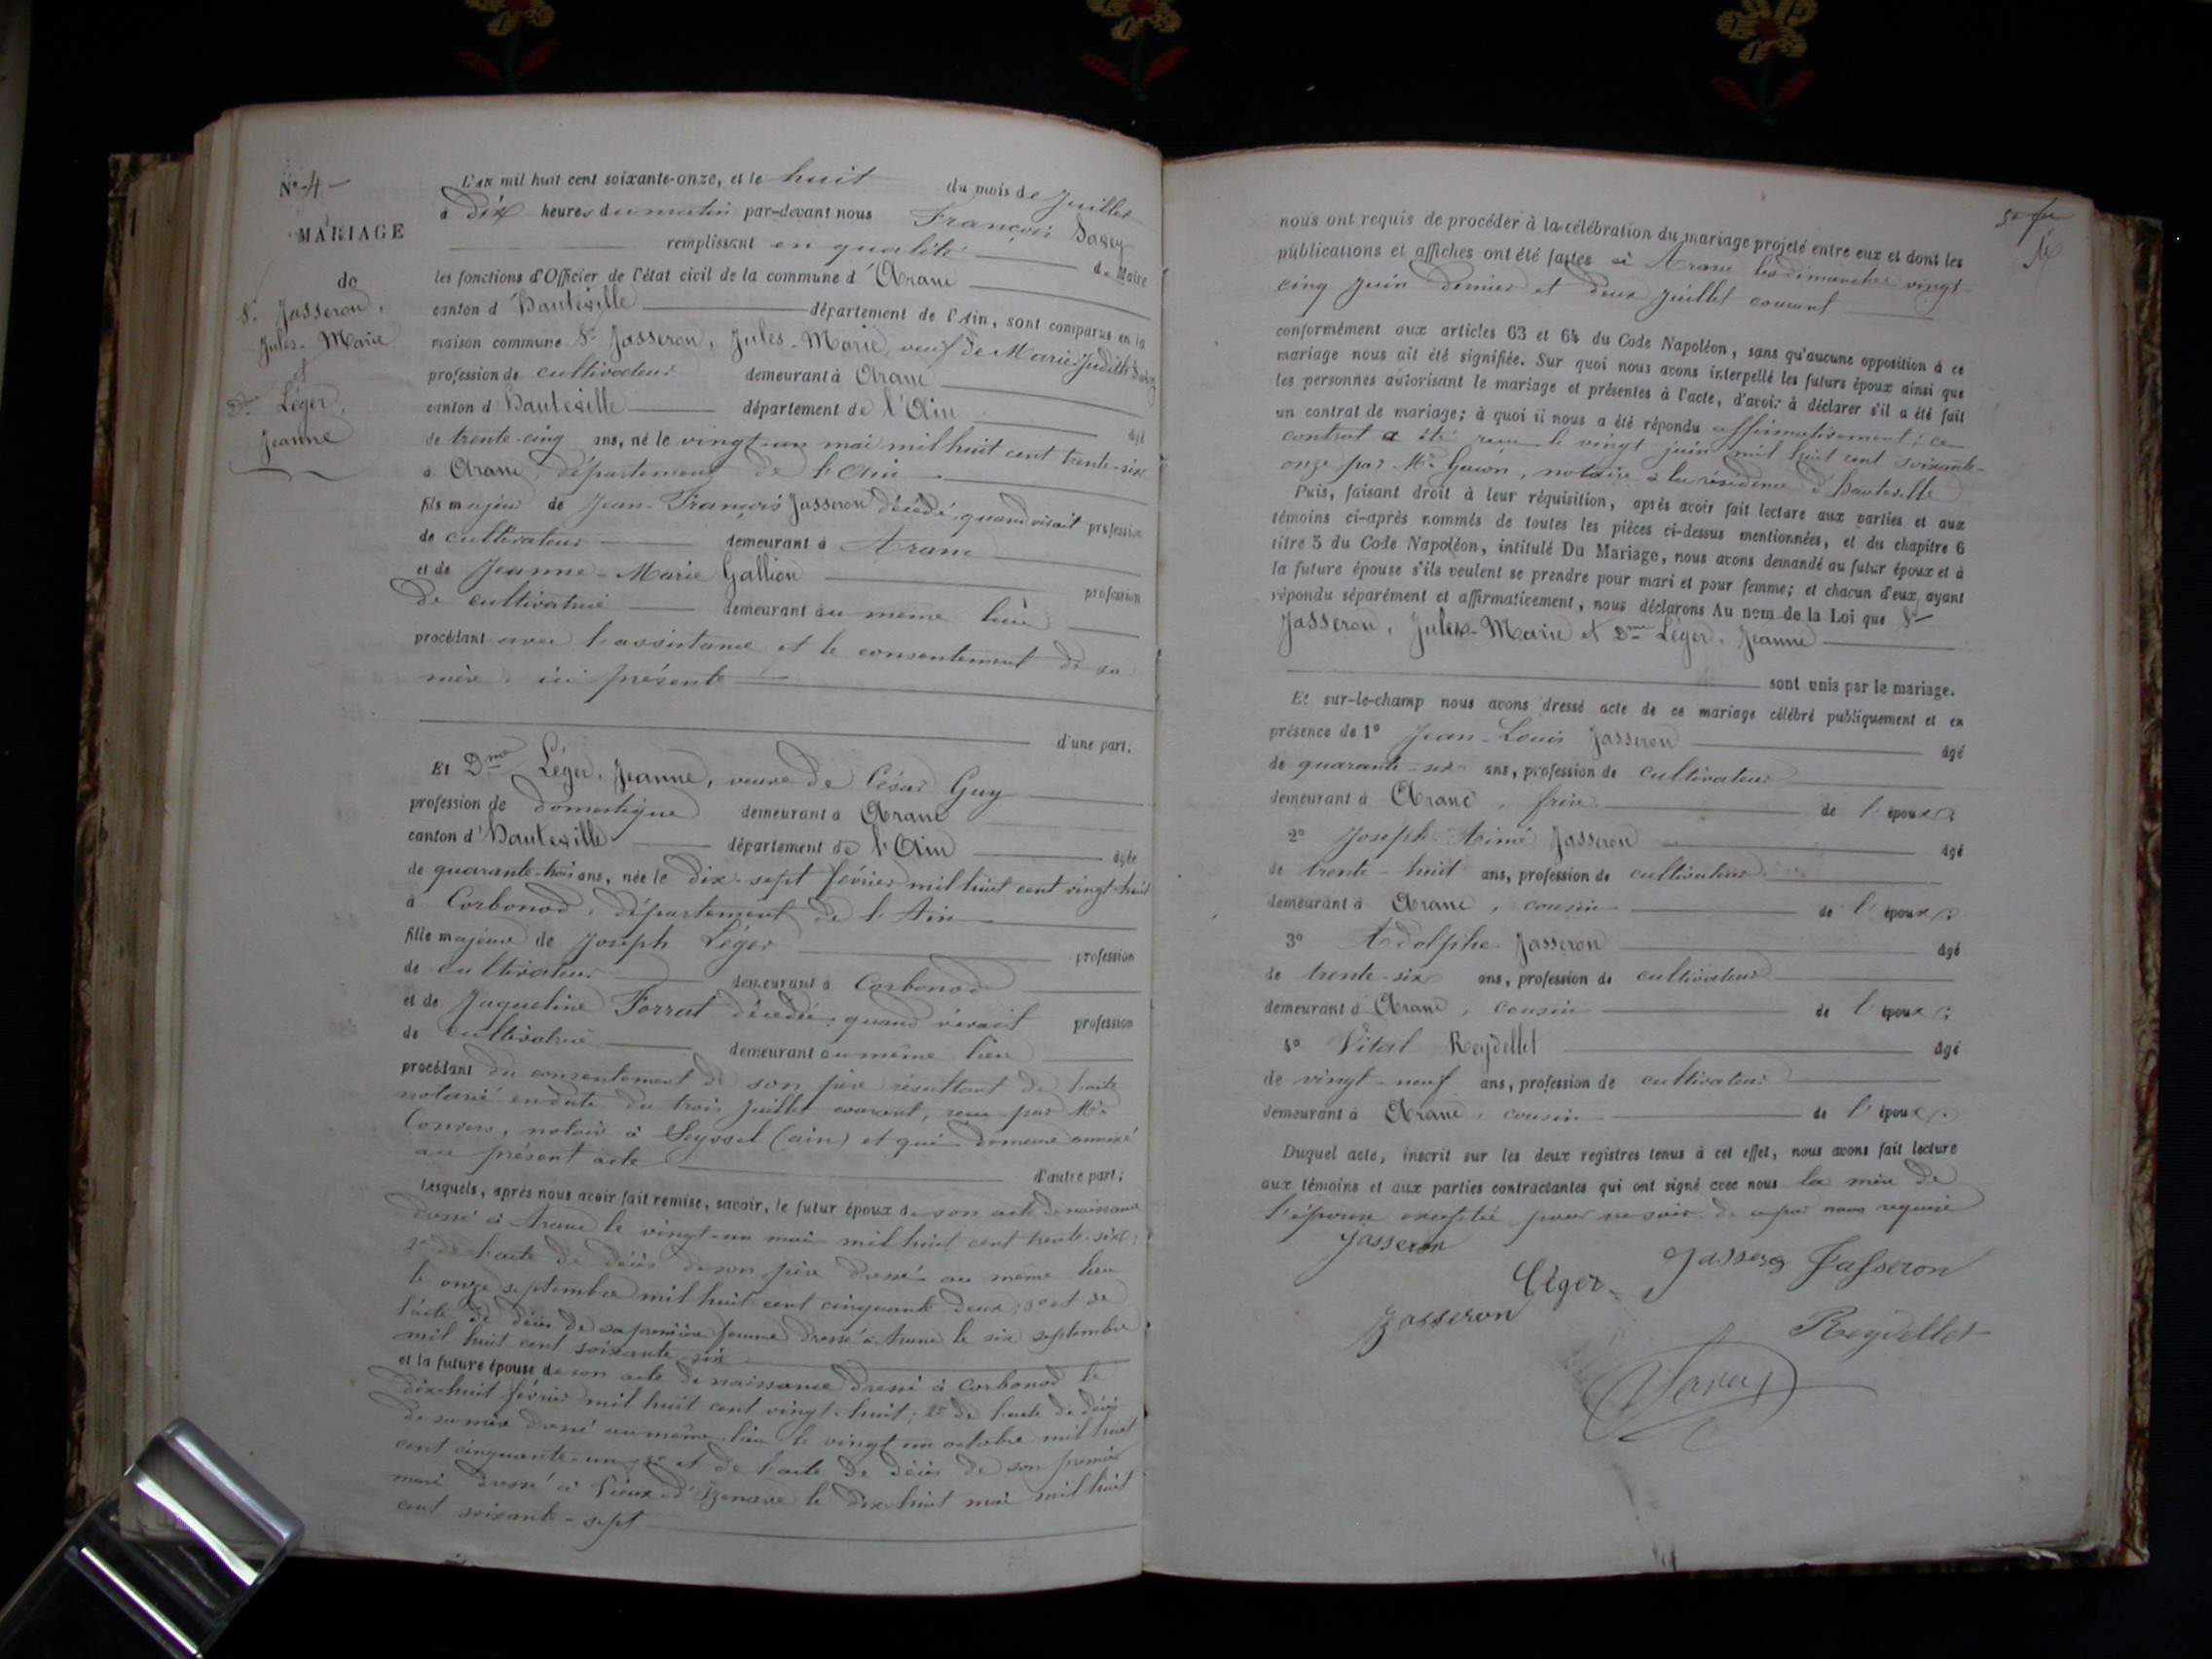 N° 4
MARIAGE
de
Sr Jasseron,
Jules-Marie
et
Dme Léger,
Jeanne
L'AN mil huit cent soixante-onze, et le huit du mois de Juillet
à Dix heures du matin par-devant nous François
remplissant en qualité de Maire
les fonctions d'Officier de l'état civil de la commune d'Aranc
canton d'Hauteville département de l'Ain, sont comparus en la
maison commune Sr Jasseron, Jules-Marie, veuf de Marie Judith
profession de cultivateur demeurant à Aranc
canton d'Hauteville département de l'Ain âgé
de trente-cinq ans, né le vingt-un mai mil huit cent trente-six
à Aranc, département de l'Ain
fils majeur de Jean-François Jasseron décédé, quand vivait profession
de cultivateur demeurant à Aranc
et de Jeanne-Marie Gallion profession
de cultivatrice demeurant au même lieu
procédant avec l'assistance et le consentement de sa
mère, ici présente
d'une part;
Et Dme Léger, Jeanne, veuve de César Guy
profession de domestique demeurant à Aranc
canton d'Hauteville département de l'Ain âgée
de quarante-trois ans, née le dix-sept février mil huit cent vingt-huit
à Corbonod, département de l'Ain
fille majeure de Joseph Léger profession
de cultivateur demeurant à Corbonod
et de Jaqueline Forrat décédée, quand vivait profession
de cultivatrice demeurant au même lieu
procédant du consentement de son père résultant de l'acte
notarié en date du trois Juillet courant, reçu par Me
Convers, notaire à Seyssel (ain) et qui demeure annexé
au présent acte d'autre part;
Lesquels, après nous avoir fait remise, savoir, le futur époux de son acte de naissance
dressé à Aranc le vingt-un mai mil huit cent trente-six;
2° de l'acte de décès de son père dressé au même lieu
le onze septembre mil huit cent cinquante-deux; 3° et de
l'acte de décès de sa première femme dressé à Aranc le six septembre
mil huit cent soixante-six
et la future épouse de son acte de naissance dressé à Corbonod le
dix-huit février mil huit cent vingt-huit; 2° de l'acte de décès
de sa mère dressé au même lieu le vingt un octobre mil huit
cent cinquante-un; 3° et de l'acte de décès de son premier
mari dressé à Vieux-d'Izenave le dix-huit mai mil huit
cent soixante-sept
nous ont requis de procéder à la célébration du mariage projeté entre eux et dont les
publications et affiches ont été faites à Aranc les dimanches vingt-
cinq juin dernier et deux juillet courant
conformément aux articles 63 et 64 du Code Napoléon, sans qu'aucune opposition à ce
mariage nous ait été signifiée. Sur quoi nous avons interpellé les futurs époux ainsi que
les personnes autorisant le mariage et présentes à l'acte, d'avoir à déclarer s'il a été fait
un contrat de mariage; à quoi il nous a été répondu affirmativement; ce
contrat a été reçu le vingt juin mil huit cent soixante-
onze par Me notaire à la résidence d'hauteville
Puis, faisant droit à leur réquisition, après avoir fait lecture aux parties et aux
témoins ci-après nommés de toutes les pièces ci-dessus mentionnées, et du chapitre 6
titre 5 du Code Napoléon, intitulé Du Mariage, nous avons demandé au futur époux et à
la future épouse s'ils veulent se prendre pour mari et pour femme; et chacun d'eux ayant
répondu séparément et affirmativement, nous déclarons Au nom de la Loi que Sr
Jasseron, Jules-Marie et Dme Léger, Jeanne
sont unis par le mariage.
Et sur-le-champ nous avons dressé acte de ce mariage célébré publiquement et en
présence de 1° Jean-Louis Jasseron âgé
de quarante-six ans, profession de cultivateur
demeurant à Aranc, frère de l'époux;
2° Joseph-Aimé Jasseron âgé
de trente-huit ans, profession de cultivateur
demeurant à Aranc, cousin de l'époux;
3° Adolphe Jasseron âgé
de trente-six ans, profession de cultivateur
demeurant à Aranc, cousin de l'époux;
4° Vital Reydellet âgé
de vingt-neuf ans, profession de cultivateur
demeurant à Aranc, cousin de l'époux.
Duquel acte, inscrit sur les deux registres tenus à cet effet, nous avons fait lecture
aux témoins et aux parties contractantes qui ont signé avec nous la mère de
l'époux exceptée pour ne savoir de ce par nous requise
Jasseron
Léger
Jasseron
Jasseron
Jasseron
Reydellet